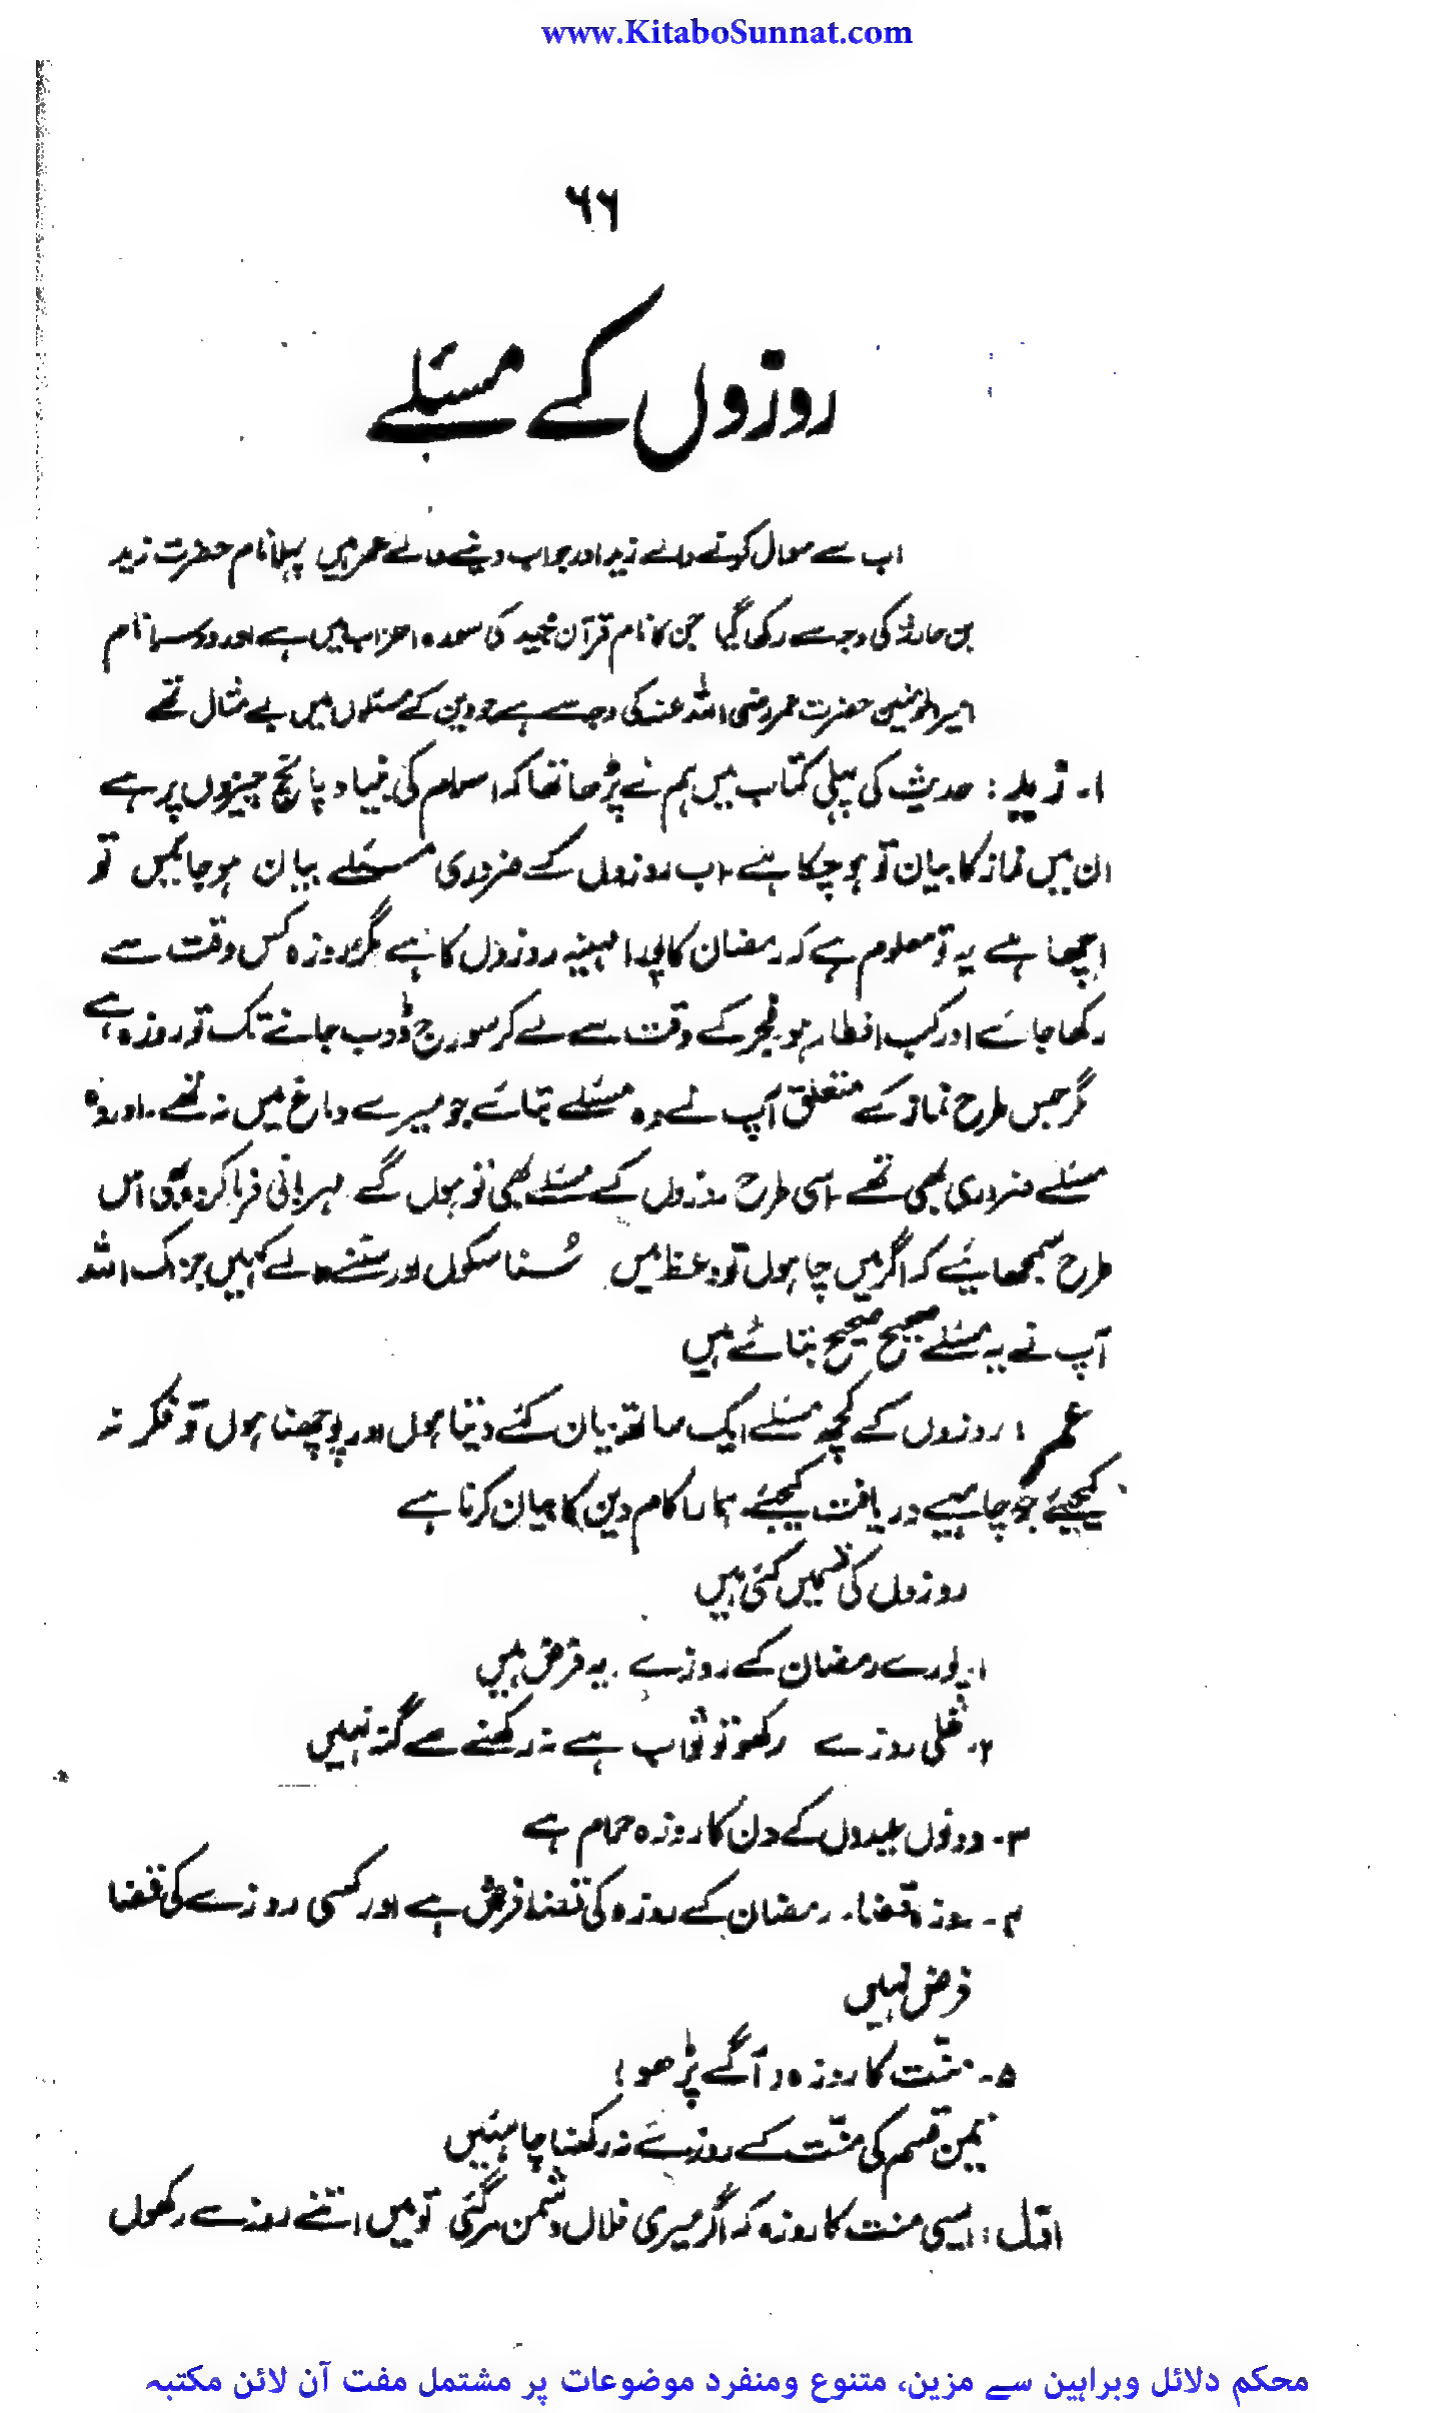 www.KitaboSunnat.com
۶۶
روزوں کے مسئلے
اب سے سوال کرنے والے زید اور جواب دینے والے عمر ہیں پہلا نام حضرت زید
بن حارثہ کی وجہ سے رکھی گیا جن کا نام قرآن مجید کی سورہ احزاب میں ہے اور دوسرا نام
امیرالمومنین حضرت عمر رضی اللہ عنہ کی وجہ سے ہے جو دین کے مسئلوں میں بے مثال تھے
۱۔ زید: حدیث کی پہلی کتاب میں ہم نے پڑھا تھا کہ اسلام کی بنیاد پانچ چیزوں پر ہے
ان میں نماز کا بیان تو ہو چکا ہے۔ اب روزوں کے ضروری مسئلے بیان ہو جائیں تو
اچھا ہے یہ تو معلوم ہے کہ رمضان کا پورا مہینہ روزوں کا ہے مگر روزہ کس وقت سے
رکھا جائے اور کب افطار ہو فجر کے وقت سے لے کر سورج ڈوب جانے تک تو روزہ ہے
مگر جس طرح نماز کے متعلق آپ نے وہ مسئلے بتائے جو میرے دماغ میں نہ تھے۔ اور وہ
مسئلے ضروری بھی تھے۔ اسی طرح روزوں کے مسئلے بھی تو ہوں گے۔ مہربانی فرما کر وہ بھی اس
طرح سمجھایئے کہ اگر میں چاہوں تو وعظ میں سُنا سکوں اور سننے والے کہیں جزاک اللہ
آپ نے یہ مسئلے صحیح صحیح بتائے ہیں
عمر: روزوں کے کچھ مسئلے ایک ساتھ بیان کئے دیتا ہوں اور پوچھنا ہوں تو فکر نہ
کیجیئے جو چاہیے دریافت کیجیئے۔ ہمارا کام دین کا بیان کرنا ہے
روزوں کی قسمیں کئی ہیں
۱۔ پورے رمضان کے روزے۔ یہ فرض ہیں
۲۔ نفلی روزے رکھو تو ثواب ہے نہ رکھنے سے گنہ نہیں
۳۔ دونوں عیدوں کے دن کا روزہ حرام ہے
۴۔ روزہ قضا۔ رمضان کے روزہ کی قضا فرض ہے اور کسی روزے کی قضا
فرض نہیں
۵۔ منّت کا روزہ۔ آگے پڑھو!
تین قسم کی منّت کے روزے نہ رکھنا چاہئیں
اوّل: ایسی منت کا روزہ کہ اگر میری فلاں دشمن مر گئی تو میں اتنے روزے رکھوں
محکم دلائل وبراہین سے مزین، متنوع ومنفرد موضوعات پر مشتمل مفت آن لائن مکتبہ